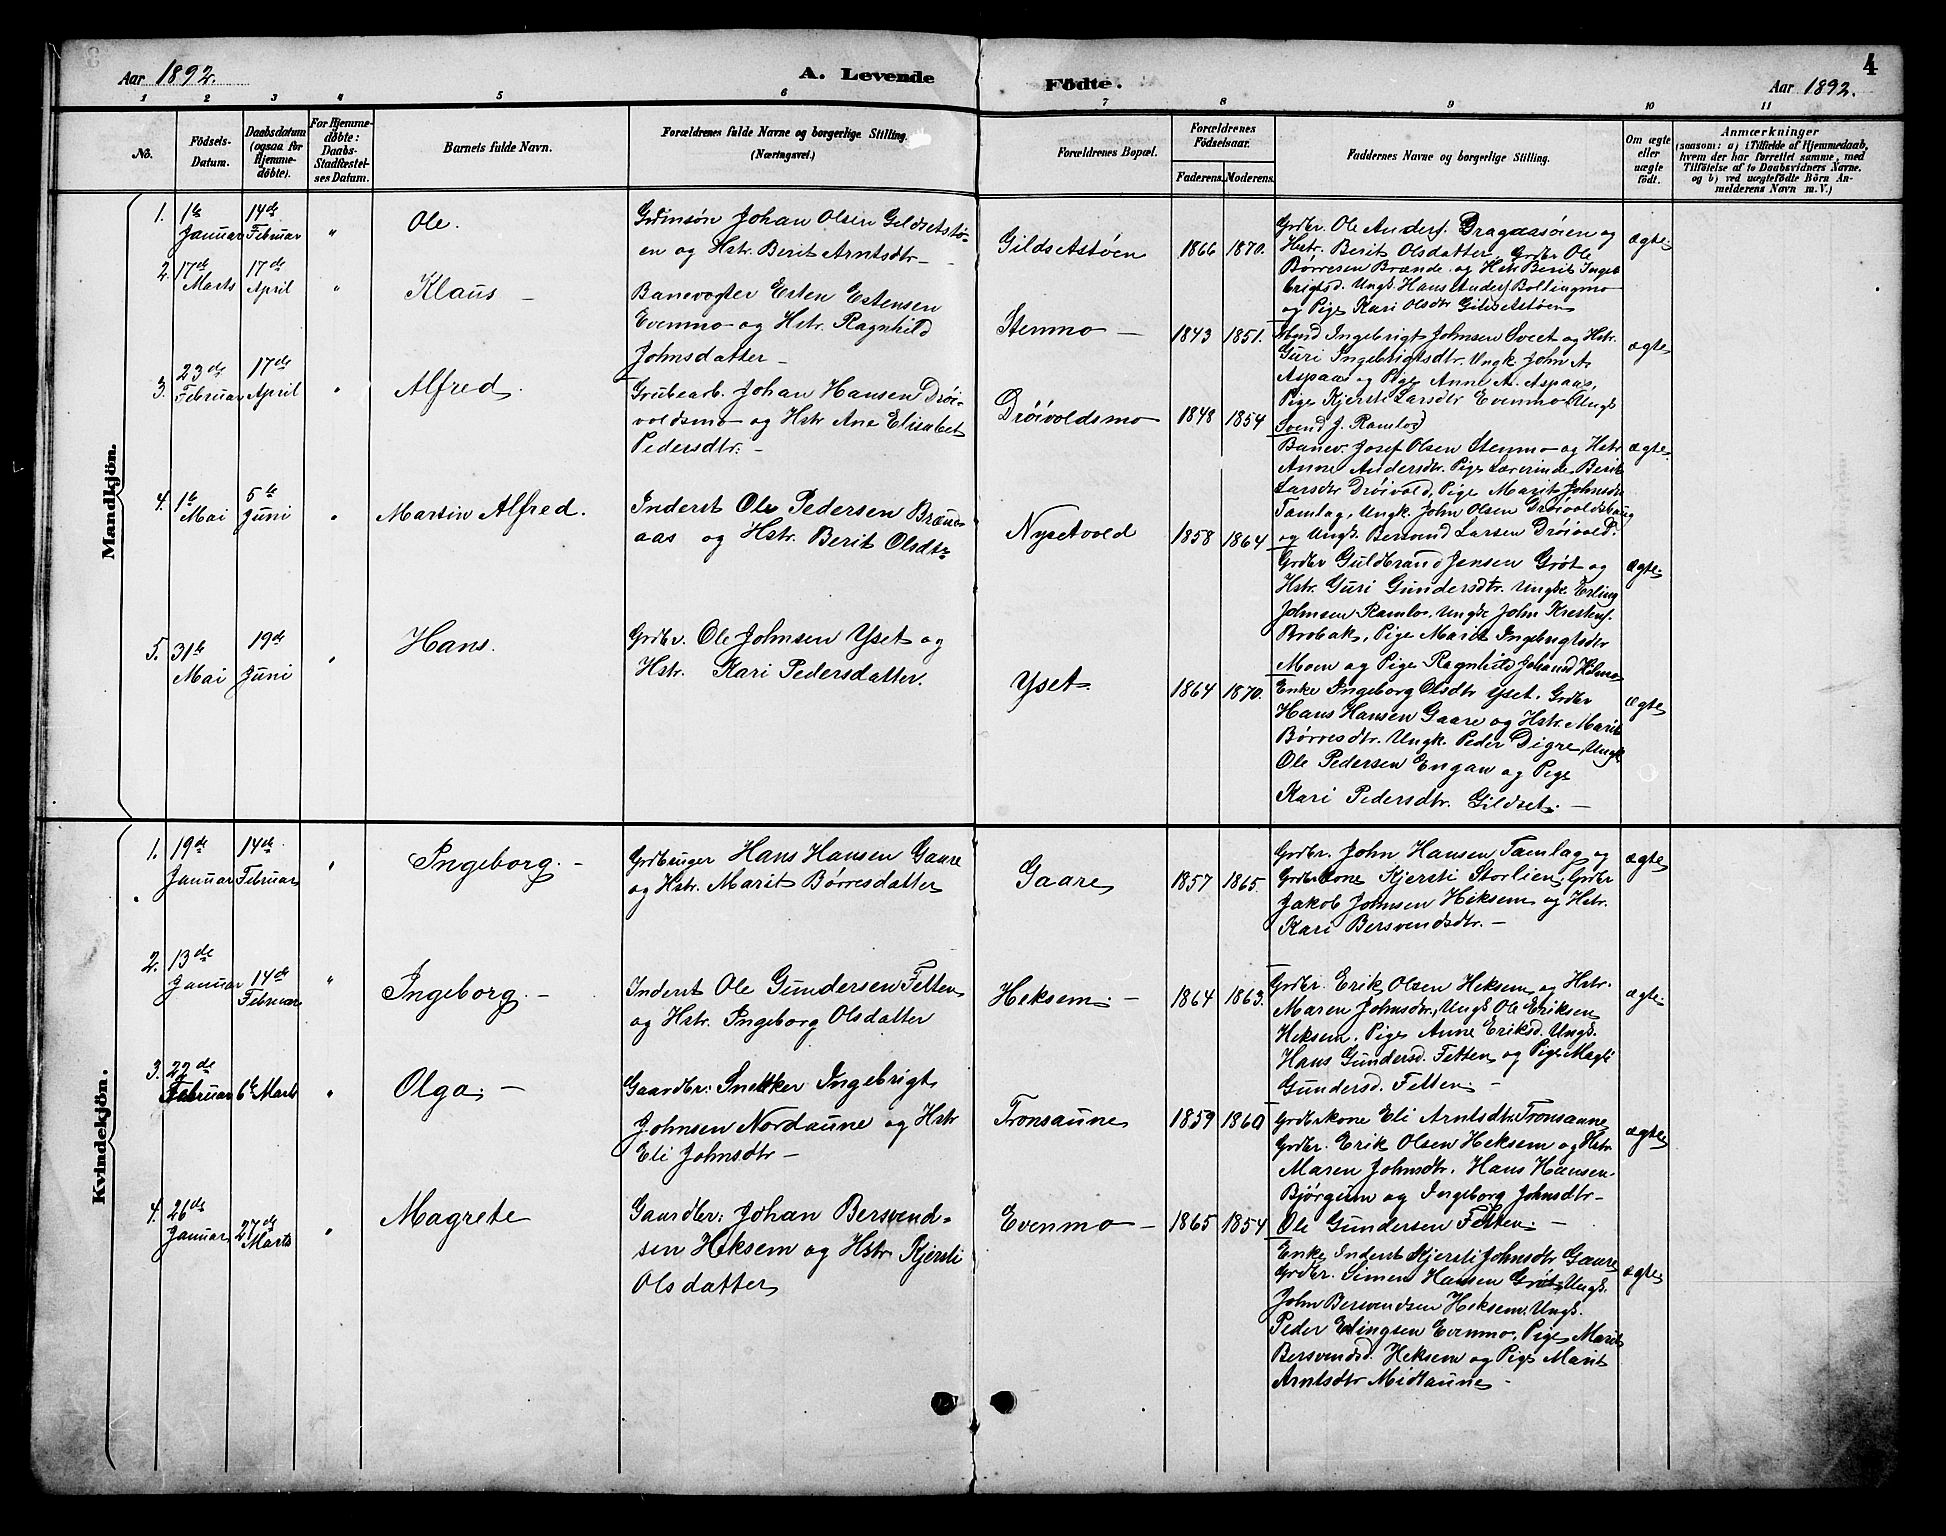 4
Aar 1892.
A. Levende
Födte.
Aar 1892.
1 2 3 4 5 6 7 8 9 10 11
No.
Födsels-
Datum.
Daabsdatum
(ogsaa for
Hjemme-
døbte).
For Hjemme-
døbte:
Daabs-
Stadfæstel-
ses Datum.
Barnets fulde Navn.
Forældrenes fulde Navne og borgerlige Stilling.
(Næringsvei.)
Forældrenes Bopæl.
Forældrenes
Födselsaar.
Faderens. Moderens.
Faddernes Navne og borgerlige Stilling.
Om ægte
eller
uægte
födt.
Anmærkninger
(saasom: a) i Tilfælde af Hjemmedaab,
hvem der har forrettet samme, med
Tilföielse af to Daabsvidners Navne,
og b) ved uægtefödte Börn An-
melderens Navn m. V.)
Mandkjön.
1. 1ste Januar 14de Februar " Ole.
Grdmsön Johan Olsen Gildsetstø-
en og Hstr. Berit Arntsdtr –
Gildsetstøen 1866 1870.
Grdbr. Ole Anders. Dragaasøien og
Hstr. Berit Olsdatter, Grdbr Ole
Børresen Brænde og Hstr Berit Inge-
brigtsd. Ungk Hans Anders. Bollingmo
og Pige Kari Olsdtr Gildsetstøen
ægte
2. 17de Marts 17de April " Klaus –
Banevogter Esten Estensen
Evenmo og Hstr. Ragnhild
Johnsdatter –
Stenmo – 1843 1851.
Mand Ingebrigt Johnsen Sveet og Hstr.
Guri Ingebrigtsdtr. Ungk. John A.
Aspaas og Pige Anne A. Aspaas,
Pige Kjersti Larsdtr Evenmo, Ungk
Svend J. Ramlo
ægte
3. 23de Februar 17de April " Alfred.
Grubearb. Johan Hansen Drøi-
voldsmo og Hstr Ane Elisabet
Pedersdtr: –
Drøivoldsmo 1848 1854
Banev. Josef Olsen Stenmo og Hstr
Anne Andersdtr. Pige Lærerinde Berit
Larsdtr Drøivold, Pige Marit Johnsdr
Tamlag, Ungk. John Olsen Drøivoldshaug
og Ungk. Bersvend Larsen Drøivold.
ægte
4. 1ste Mai 5te Juni " Martin Alfred.
Inderst Ole Pedersen Bræn-
aas og Hstr. Berit Olsdtr
Nysetvold 1858 1864
Grdbr Guldbrand Jensen Grøt og
Hstr. Guri Gundersdtr. Ungk. Erling
Johnsen Ramlo. Ungk. John Krestens.
Brobak, Pige Marit Ingebrigtsdtr
Moen og Pige Ragnhild Johansd Holmo
ægte
5. 31te Mai 19de Juni " Hans.
Grdbr. Ole Johnsen Yset og
Hstr. Kari Pedersdatter.
Yset. 1864 1870.
Enke Ingeborg Olsdtr Yset. Grdbr
Hans Hansen Gaare og Hstr. Marit
Børresdtr. Ungk. Peder Digre, Ungk
Ole Pedersen Engan og Pige
Kari Pedersdtr. Gildset. –
ægte
Kvindekjön.
1. 19de Januar 14de Februar " Ingeborg. –
Grdbruger Hans Hansen Gaare
og Hstr. Marit Børresdatter
Gaare 1857 1865.
Grdbr. John Hansen Tamlag og
Grdbrkone Kjersti Storlien, Grdbr
Jakob Johnsen Heksem og Hstr.
Kari Bersvendsdtr. –
ægte
2. 13de Januar 14de Februar " Ingeborg. –
Inderst Ole Gundersen Fetten
og Hstr. Ingeborg Olsdatter
Heksem. – 1864 1863.
Grdbr. Erik Olsen Heksem og Hstr.
Maren Johnsdtr, Ungk Ole Eriksen
Heksem. Pige Anne Eriksd. Ungk.
Hans Gundersd. Fetten og Pige Magli
Gundersd. Fetten. –
ægte
3. 22de Februar 6te Marts " Olga. –
Gaardbr: Snekker Ingebrigt
Johnsen Nordaune og Hstr
Eli Johnsdtr –
Tronsaune 1859 1860
Grdbrkone Eli Arntsdtr Tronsaune
Grdbr. Erik Olsen Heksem og Hstr.
Maren Johnsdtr. Hans Hansen
Bjørgum og Ingeborg Johnsdtr –
Ole Gundersen Fetten. –
ægte
4. 26de Januar 27de Marts " Magrete
Gaardbr: Johan Bersvend-
sen Heksem og Hstr Kjersti
Olsdatter
Evenmo – 1865 1854
Enke Inderst Kjersti Johnsdtr Gaare
Grdbr. Simen Hansen Grøt, Ungk.
John Bersvendsen Heksem. Ungk.
Peder Elingsen Evenmo, Pige Marit
Bersvendsd. Heksem og Pige Marit
Arntsdtr Midtaune –
ægte